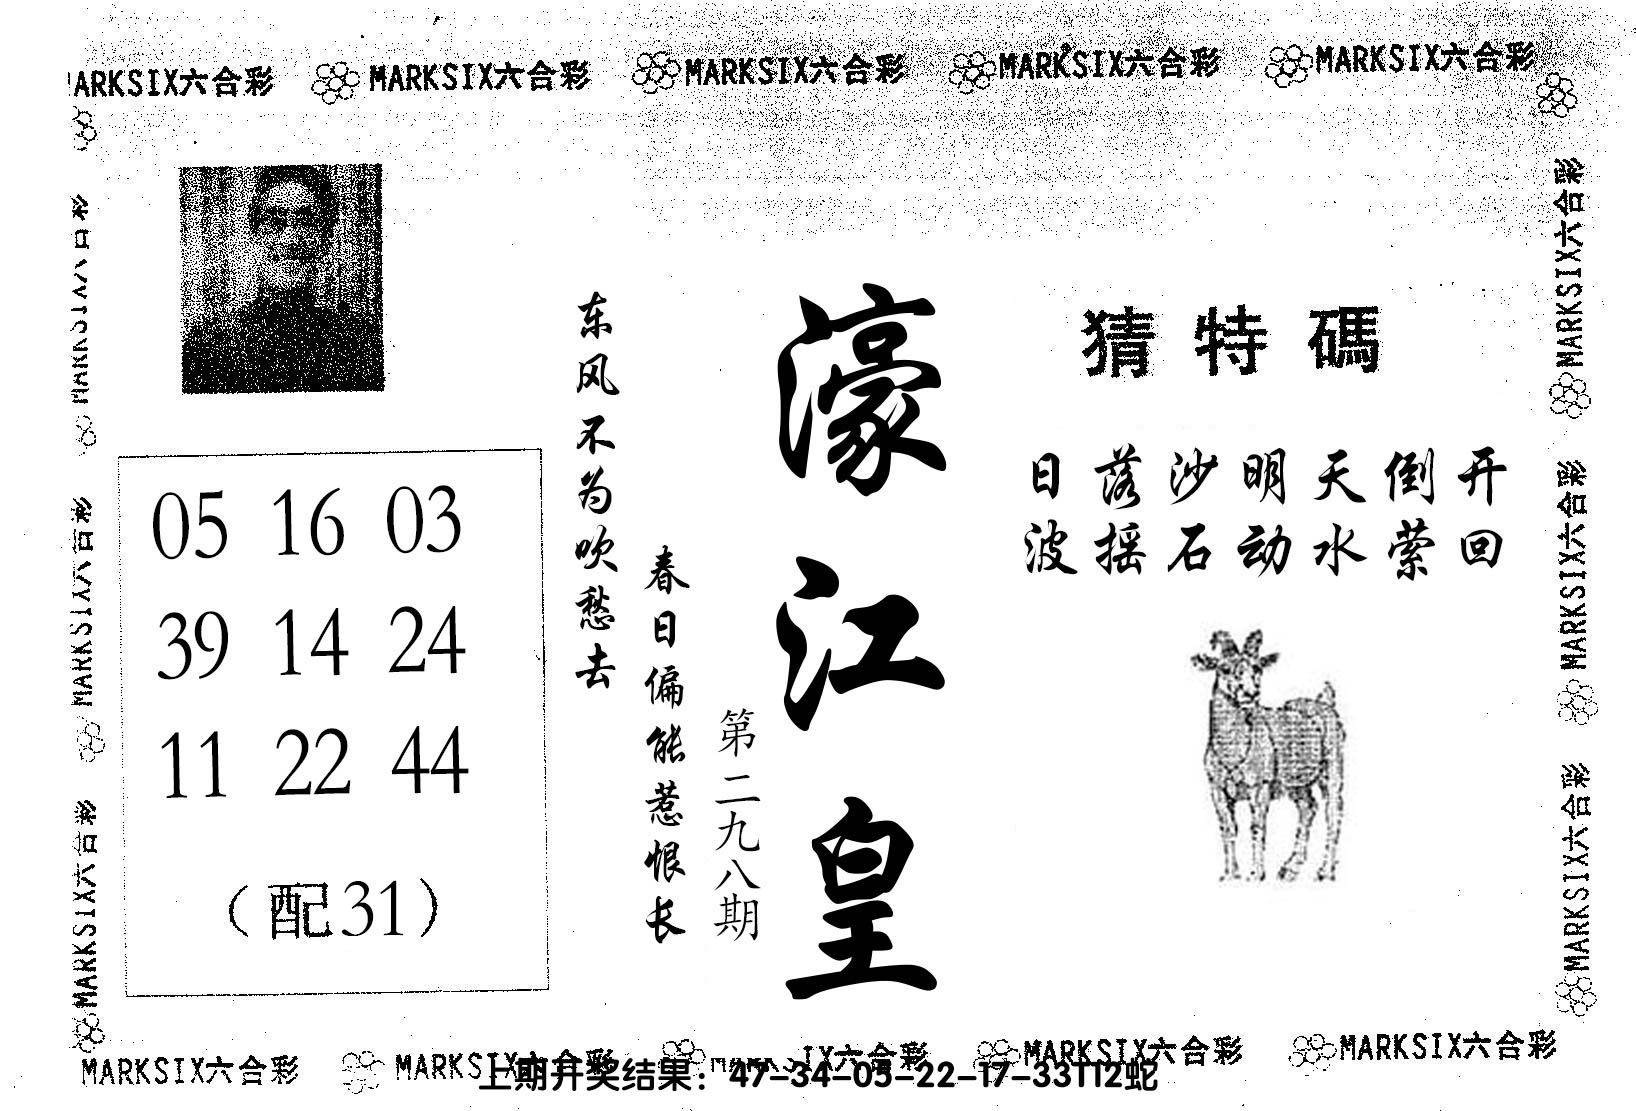 MARKSIX六合彩 MARKSIX六合彩 MARKSIX六合彩 MARKSIX六合彩
MARKSIX六合彩
MARKSIX六合彩
MARKSIX六合彩
东风不为吹愁去
春日偏能惹恨长
第二九八期
濠江皇
猜特碼
日落沙明天倒开
波摇石动水萦回
05 16 03
39 14 24
11 22 44
（配31）
MARKSIX六合彩
MARKSIX六合彩
MARKSIX六合彩 MARKSIX六合彩 MARKSIX六合彩 MARKSIX六合彩
上期开奖结果：47-34-05-22-17-33T12蛇